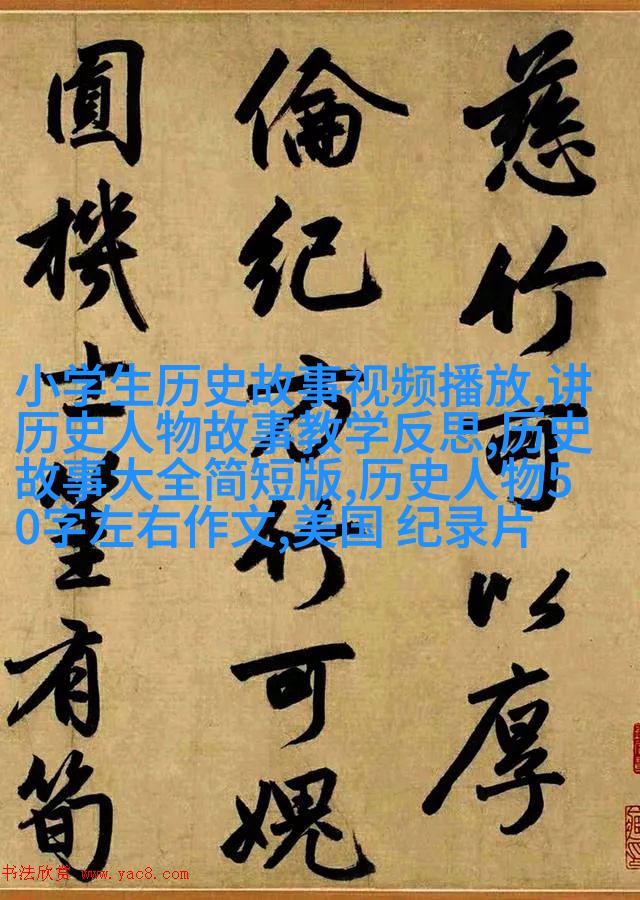 慈竹可以厚
倫紀方竹可媿
圓機士有筍
小学生历史故事视频播放,讲
历史人物故事教学反思,历史
故事大全简短版,历史人物5
0字左右作文,美国 纪录片
书法欣赏 www.yac8.com